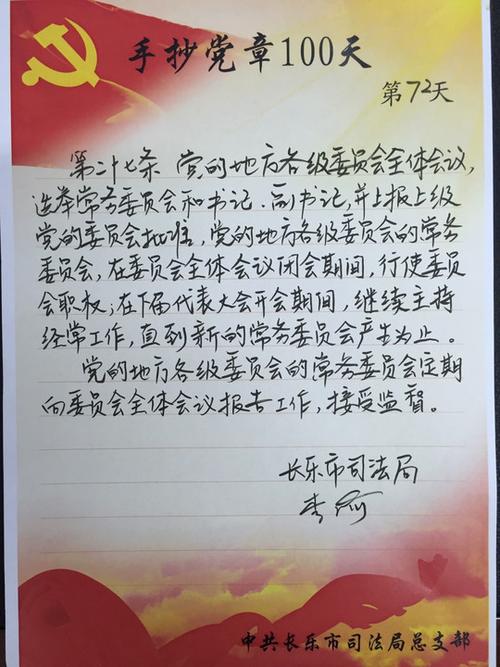 手抄党章100天
第72天
第二十七条 党的地方各级委员会全体会议,
选举常务委员会和书记、副书记,并上报上级
党的委员会批准,党的地方各级委员会的常务
委员会,在委员会全体会议闭会期间,行使委员
会职权;在下届代表大会开会期间,继续主持
经常工作,直到新的常务委员会产生为止。
党的地方各级委员会的常务委员会定期
向委员会全体会议报告工作,接受监督。
长乐市司法局
中共长乐市司法局总支部